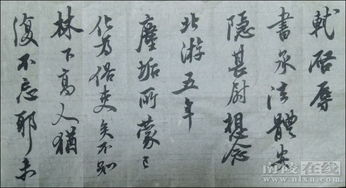 軾啓辱
書承法體安
隱甚尉想念
北游五年
塵垢所蒙已
化為俗吏矣不知
林下高人猶
復不忘耶未
在线